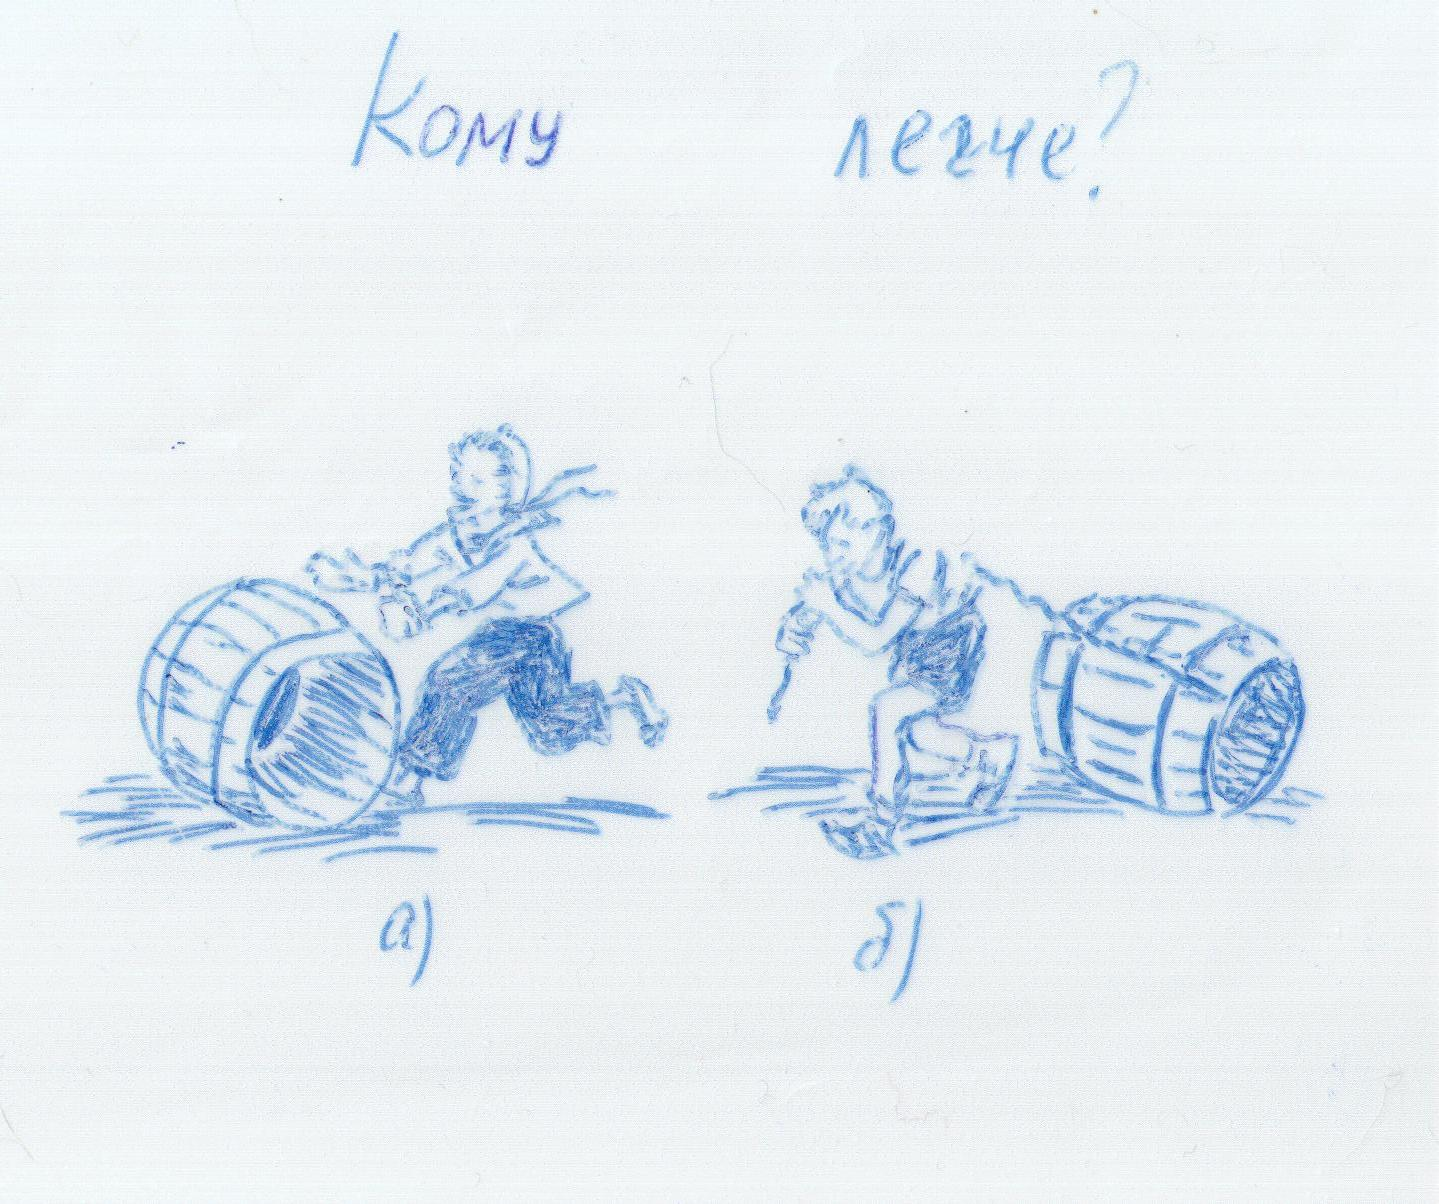 Кому легче?
а) б)